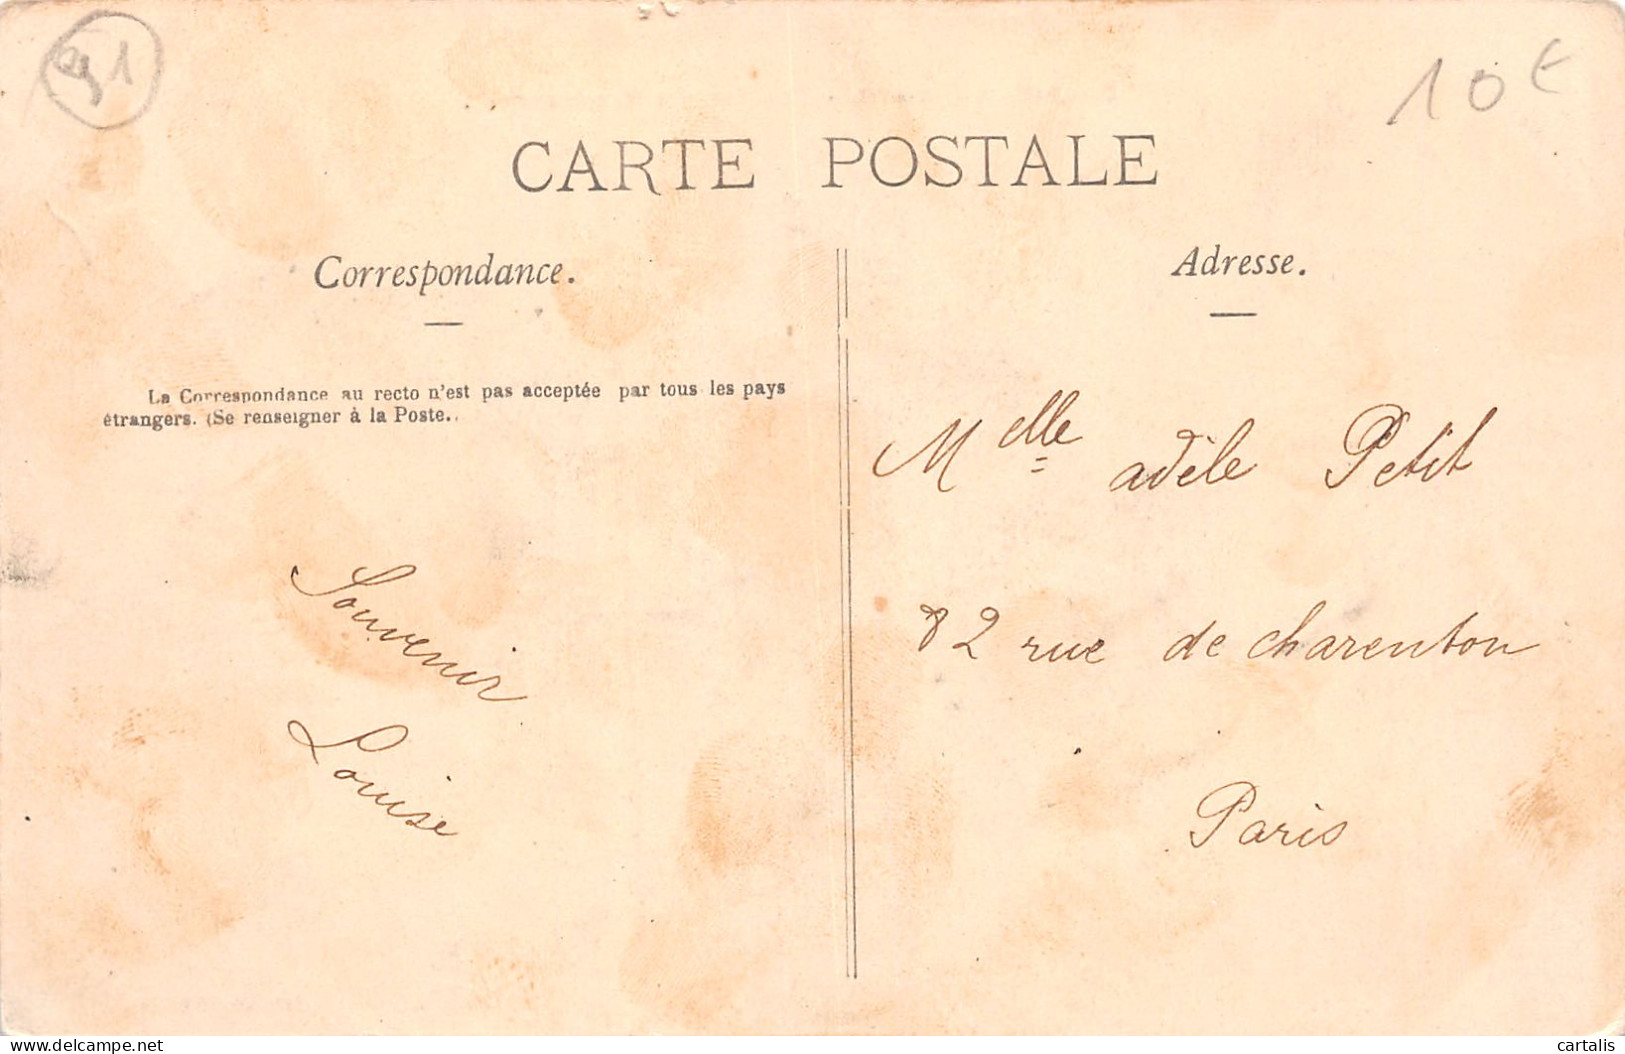 91
10€
CARTE POSTALE
Correspondance.
Adresse.
La Correspondance au recto n'est pas acceptée par tous les pays
étrangers. (Se renseigner à la Poste.)
Melle adèle Petit
82 rue de charenton
Paris
Souvenir
Louise
delcampe.net
cartalis